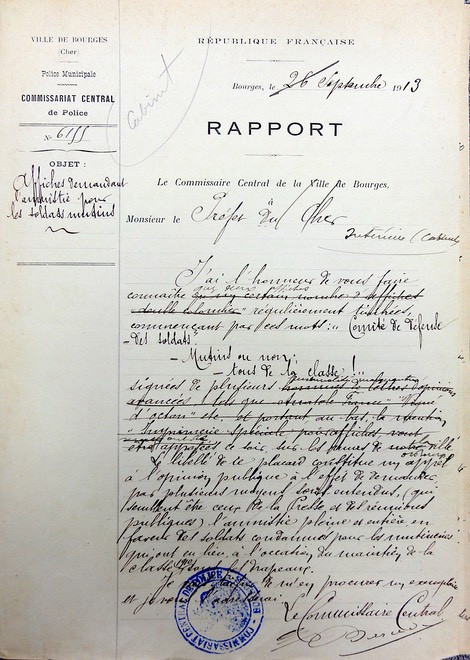 VILLE DE BOURGES
(Cher)
Police Municipale
COMMISSARIAT CENTRAL
de Police
N° 6155
OBJET :
Affiches demandant
l'amnistie pour
les soldats mutins
Cabinet
RÉPUBLIQUE FRANÇAISE
Bourges, le 26 Septembre 1913
RAPPORT
Le Commissaire Central de la Ville de Bourges,
à
Monsieur le Préfet Du Cher
Intérieur (Cabinet
J'ai l'honneur de vous faire
que deux affiches
connaître qu'un certain nombre d'affiches
double colombier régulièrement timbrées,
commençant par ces mots : Comité de défense
- des soldats.
- Mutins ou non :
- tous de la classe !..
signées de plusieurs hommes de lettres d'opinions
avancées tels que Anatole France
etc et portant au bas la mention
Imprimerie Spéciale
apposées ce soir sur les murs de notre ville
Le libellé de ce placard constitue un appel
à l'opinion publique à l'effet de demander
par plusieurs moyens sous entendus, (qui
semblent être ceux de la Presse et de réunions
publiques) l'amnistie pleine et entière en
faveur des soldats condamnés pour les mutineries
qui ont eu lieu, à l'occasion du maintien de la
classe sous les Drapeaux.
Je de m'en procurer un exemplaire
et je vous l'adresserai.
Le Commissaire Central
COMMISSARIAT CENTRAL DE POLICE